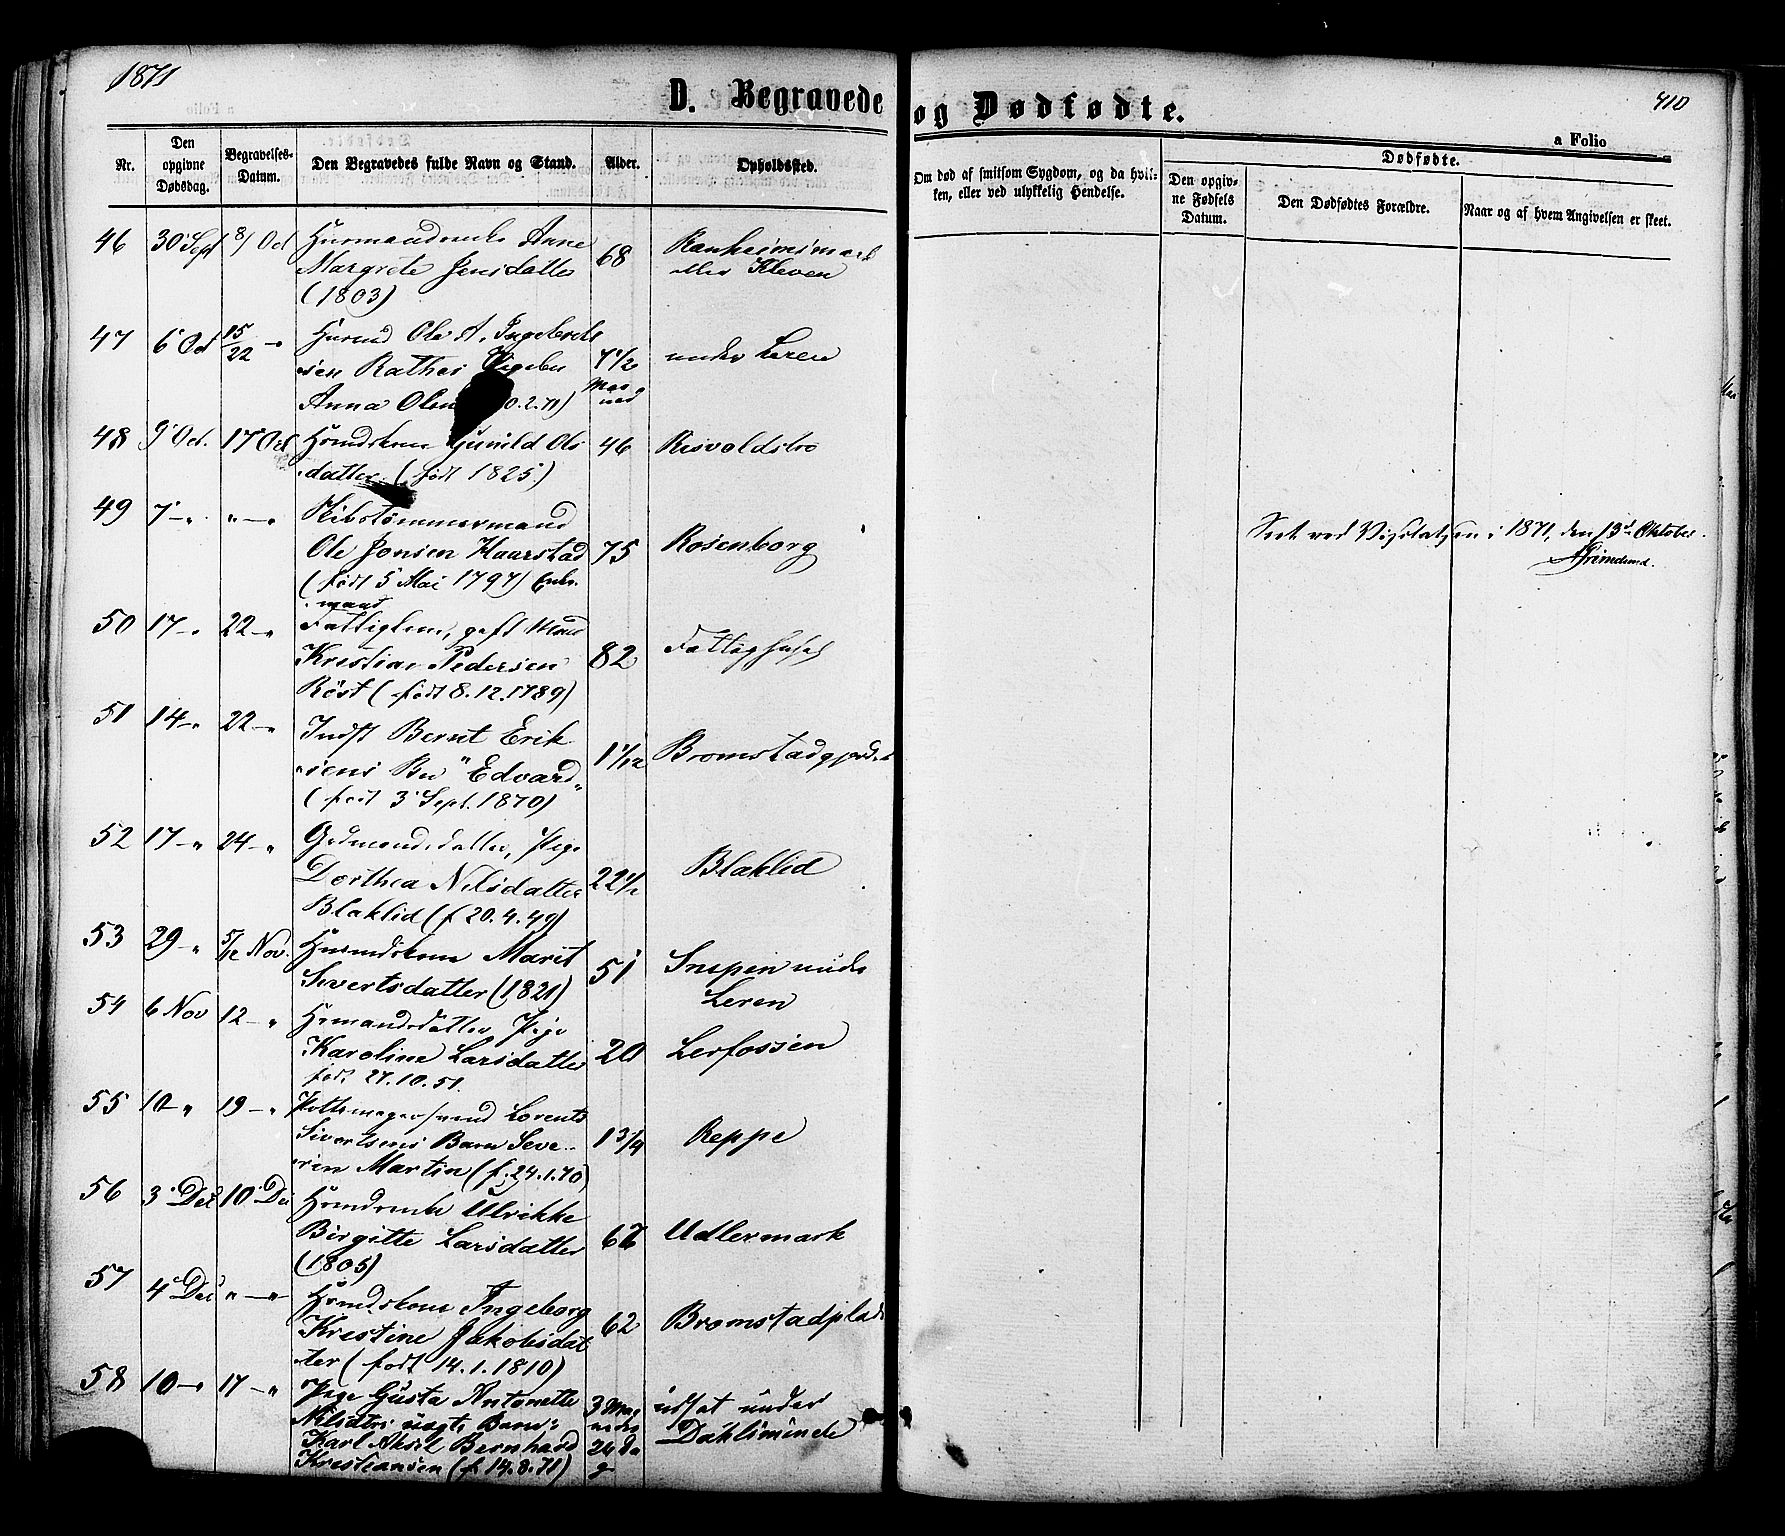 1871
D. Begravede og Dødfødte.
410
a Folio
Nr.
Den opgivne Dødsdag.
Begravelses-Datum.
Den Begravedes fulde Navn og Stand.
Alder.
Opholdssted.
Om død af smitsom Sygdom, og da hvilken, eller ved ulykkelig Hendelse.
Dødfødte.
Den opgivne Fødsels Datum.
Den Dødfødtes Forældre.
Naar og af hvem Angivelsen er skeet.
46 30 Sept 8/ Oct Husmandsenke Anne
Margrete Jensdatter 68 Ranheimsmark
(1803) eller Kleven
47 6 Oct 15/22 -" Husmd Ole A. Ingebrekt
sen Rathes Pigebn 7 1/2 Maaned under Leren
Anna Olin 0.2.71)
48 9 Oct. 17 Oct Hsmdskone Gunild Ols 46 Risvoldsbro
datter (født 1825)
49 7 -" " -" Skibstømmermand
Ole Jonsen Haarstad 75 Rosenborg
(født 5 Mai 1797) Enke
mand
50 17 -" 22 -" Fattiglem, gift Mand
Kristian Pedersen 82 Fattighuset
Röst (født 8.12.1789)
51 14 -" 22 -" Indst Bernt Erik
sens Bn "Edvard" 1 1/12 Bromstadgjerdet
(født 3 Sept. 1870)
52 17 -" 24 -" Gdmandsdatter, Pige
Dorthea Nilsdatter 22 1/2 Blaklid
Blaklid (f 20.4.49)
53 29 -" 5/12 Nov. Husmdskone Marit
Sivertsdatter (1821) 51 under
Leren
54 6 Nov 12 -" Hsmandsdatter Pige
Karoline Larsdatter 20 Lerfossen
født 27.10.51.
55 10 -" 19 -" Pottemagersvend Lorents
Sivertsens Barn Seve- 1 3/4 Reppe
rin Martin (f. 24.1.70)
56 3 Dec 10 Dec Hsmdsenke Ulrikke
Birgitte Larsdatter 67 Udlermark
(1805)
57 4 Dec " -" Hsmdskone Ingeborg
Kristine Jakobsdat 62 Bromstadplads
ter (født 14.1.1810)
58 10 -" 17 -" Pige Gusta Antonette
Nilsdtrs uægte Barn: 3 Maaneder 24 Dag indsat under
Karl Aksel Bernhard Dahlsminde
Kristiansen (f 14.8.71)
Seet ved Visitatsen i 1871, den 13de Oktober.
AGrimelund.